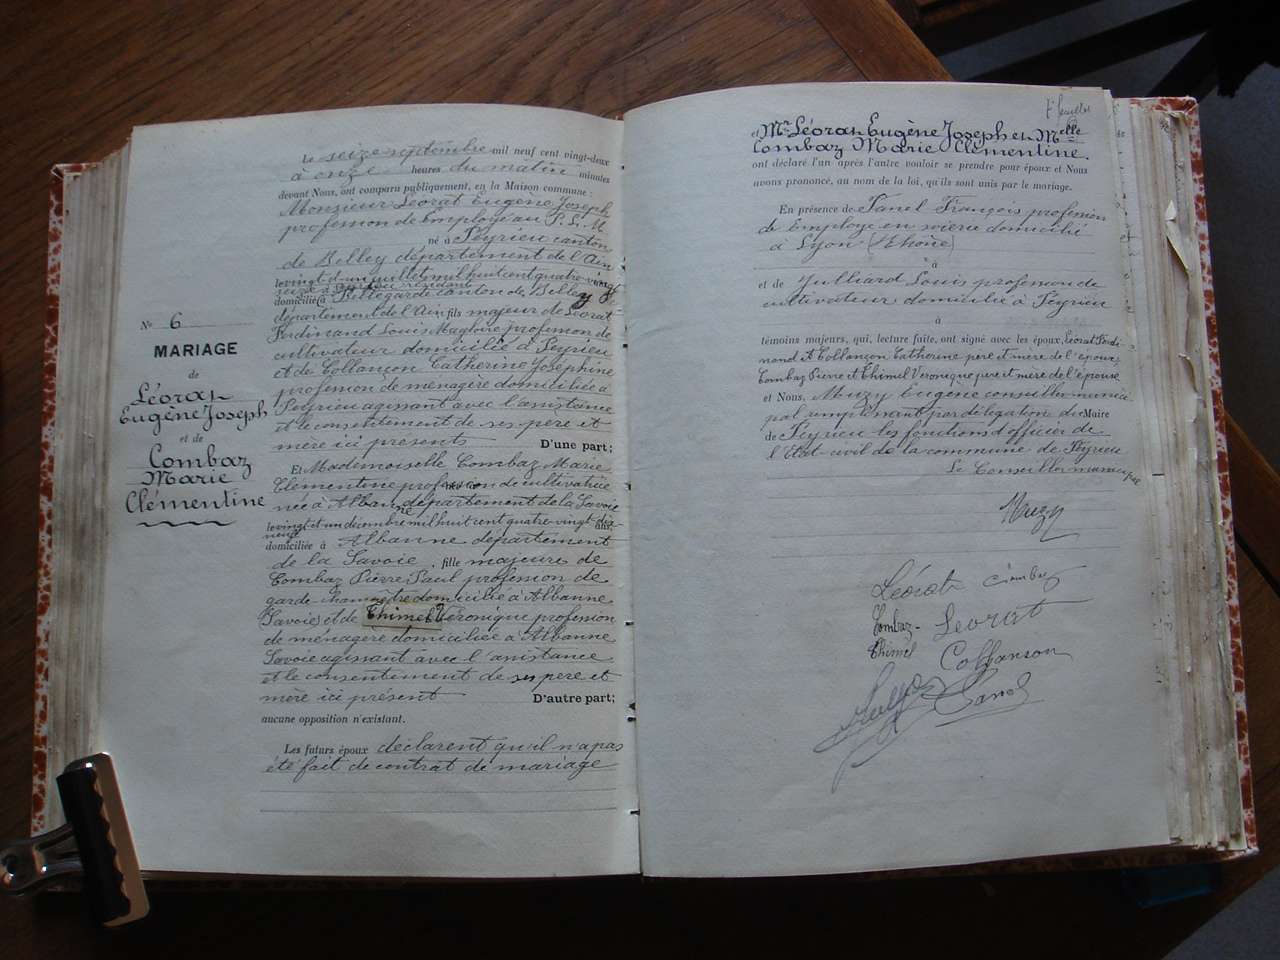 N° 6
MARIAGE
de
Léorat
Eugène Joseph
et de
Combaz
Marie
Clémentine
Le seize septembre mil neuf cent vingt-deux
à onze heures du matin minutes
devant Nous, ont comparu publiquement, en la Maison commune :
Monsieur Léorat Eugène Joseph
profession de Employé au P. L. M.
né à Peyrieu canton
de Belley département de l'Ain
le vingt d'un juillet mil huit cent quatre-vingt
seize
domicilié à Bellegarde canton de Belley
département de l'Ain fils majeur de Léorat
Ferdinand Louis Magloire profession de
cultivateur domicilié à Peyrieu
et de Collançon Catherine Joséphine
profession de ménagère domiciliée à
Peyrieu agissant avec l'assistance
et le consentement de ses père et
mère ici présents D'une part;
Et Mademoiselle Combaz Marie
Clémentine profession de cultivatrice
née à Albanne département de la Savoie
le vingt et un décembre mil huit cent quatre-vingt dix
neuf ans,
domiciliée à Albanne département
de la Savoie, fille majeure de
Combaz Pierre Paul profession de
garde-champêtre domicilié à Albanne
Savoie et de Thimel Véronique profession
de ménagère domiciliée à Albanne
Savoie agissant avec l'assistance
et le consentement de ses père et
mère ici présent D'autre part;
aucune opposition n'existant.
Les futurs époux déclarent qu'il n'a pas
été fait de contrat de mariage
et Mr Léorat Eugène Joseph et Melle
Combaz Marie Clémentine.
ont déclaré l'un après l'autre vouloir se prendre pour époux et Nous
avons prononcé, au nom de la loi, qu'ils sont unis par le mariage.
En présence de Panel François profession
de Employé en soierie domicilié
à Lyon (Rhône)
à
et de Julliard Louis profession de
cultivateur domicilié à Peyrieu
à
témoins majeurs, qui, lecture faite, ont signé avec les époux, Léorat Ferdi-
nand et Collançon Catherine père et mère de l'époux,
Combaz Pierre et Thimel Véronique père et mère de l'épouse
et Nous, Muzy Eugène conseiller munici-
pal remplissant par délégation du Maire
de Peyrieu les fonctions d'officier de
l'Etat-civil de la commune de Peyrieu
Le Conseiller municipal
Muzy
Léorat Combaz
Combaz Leorat
Thimel Collanson
Panel